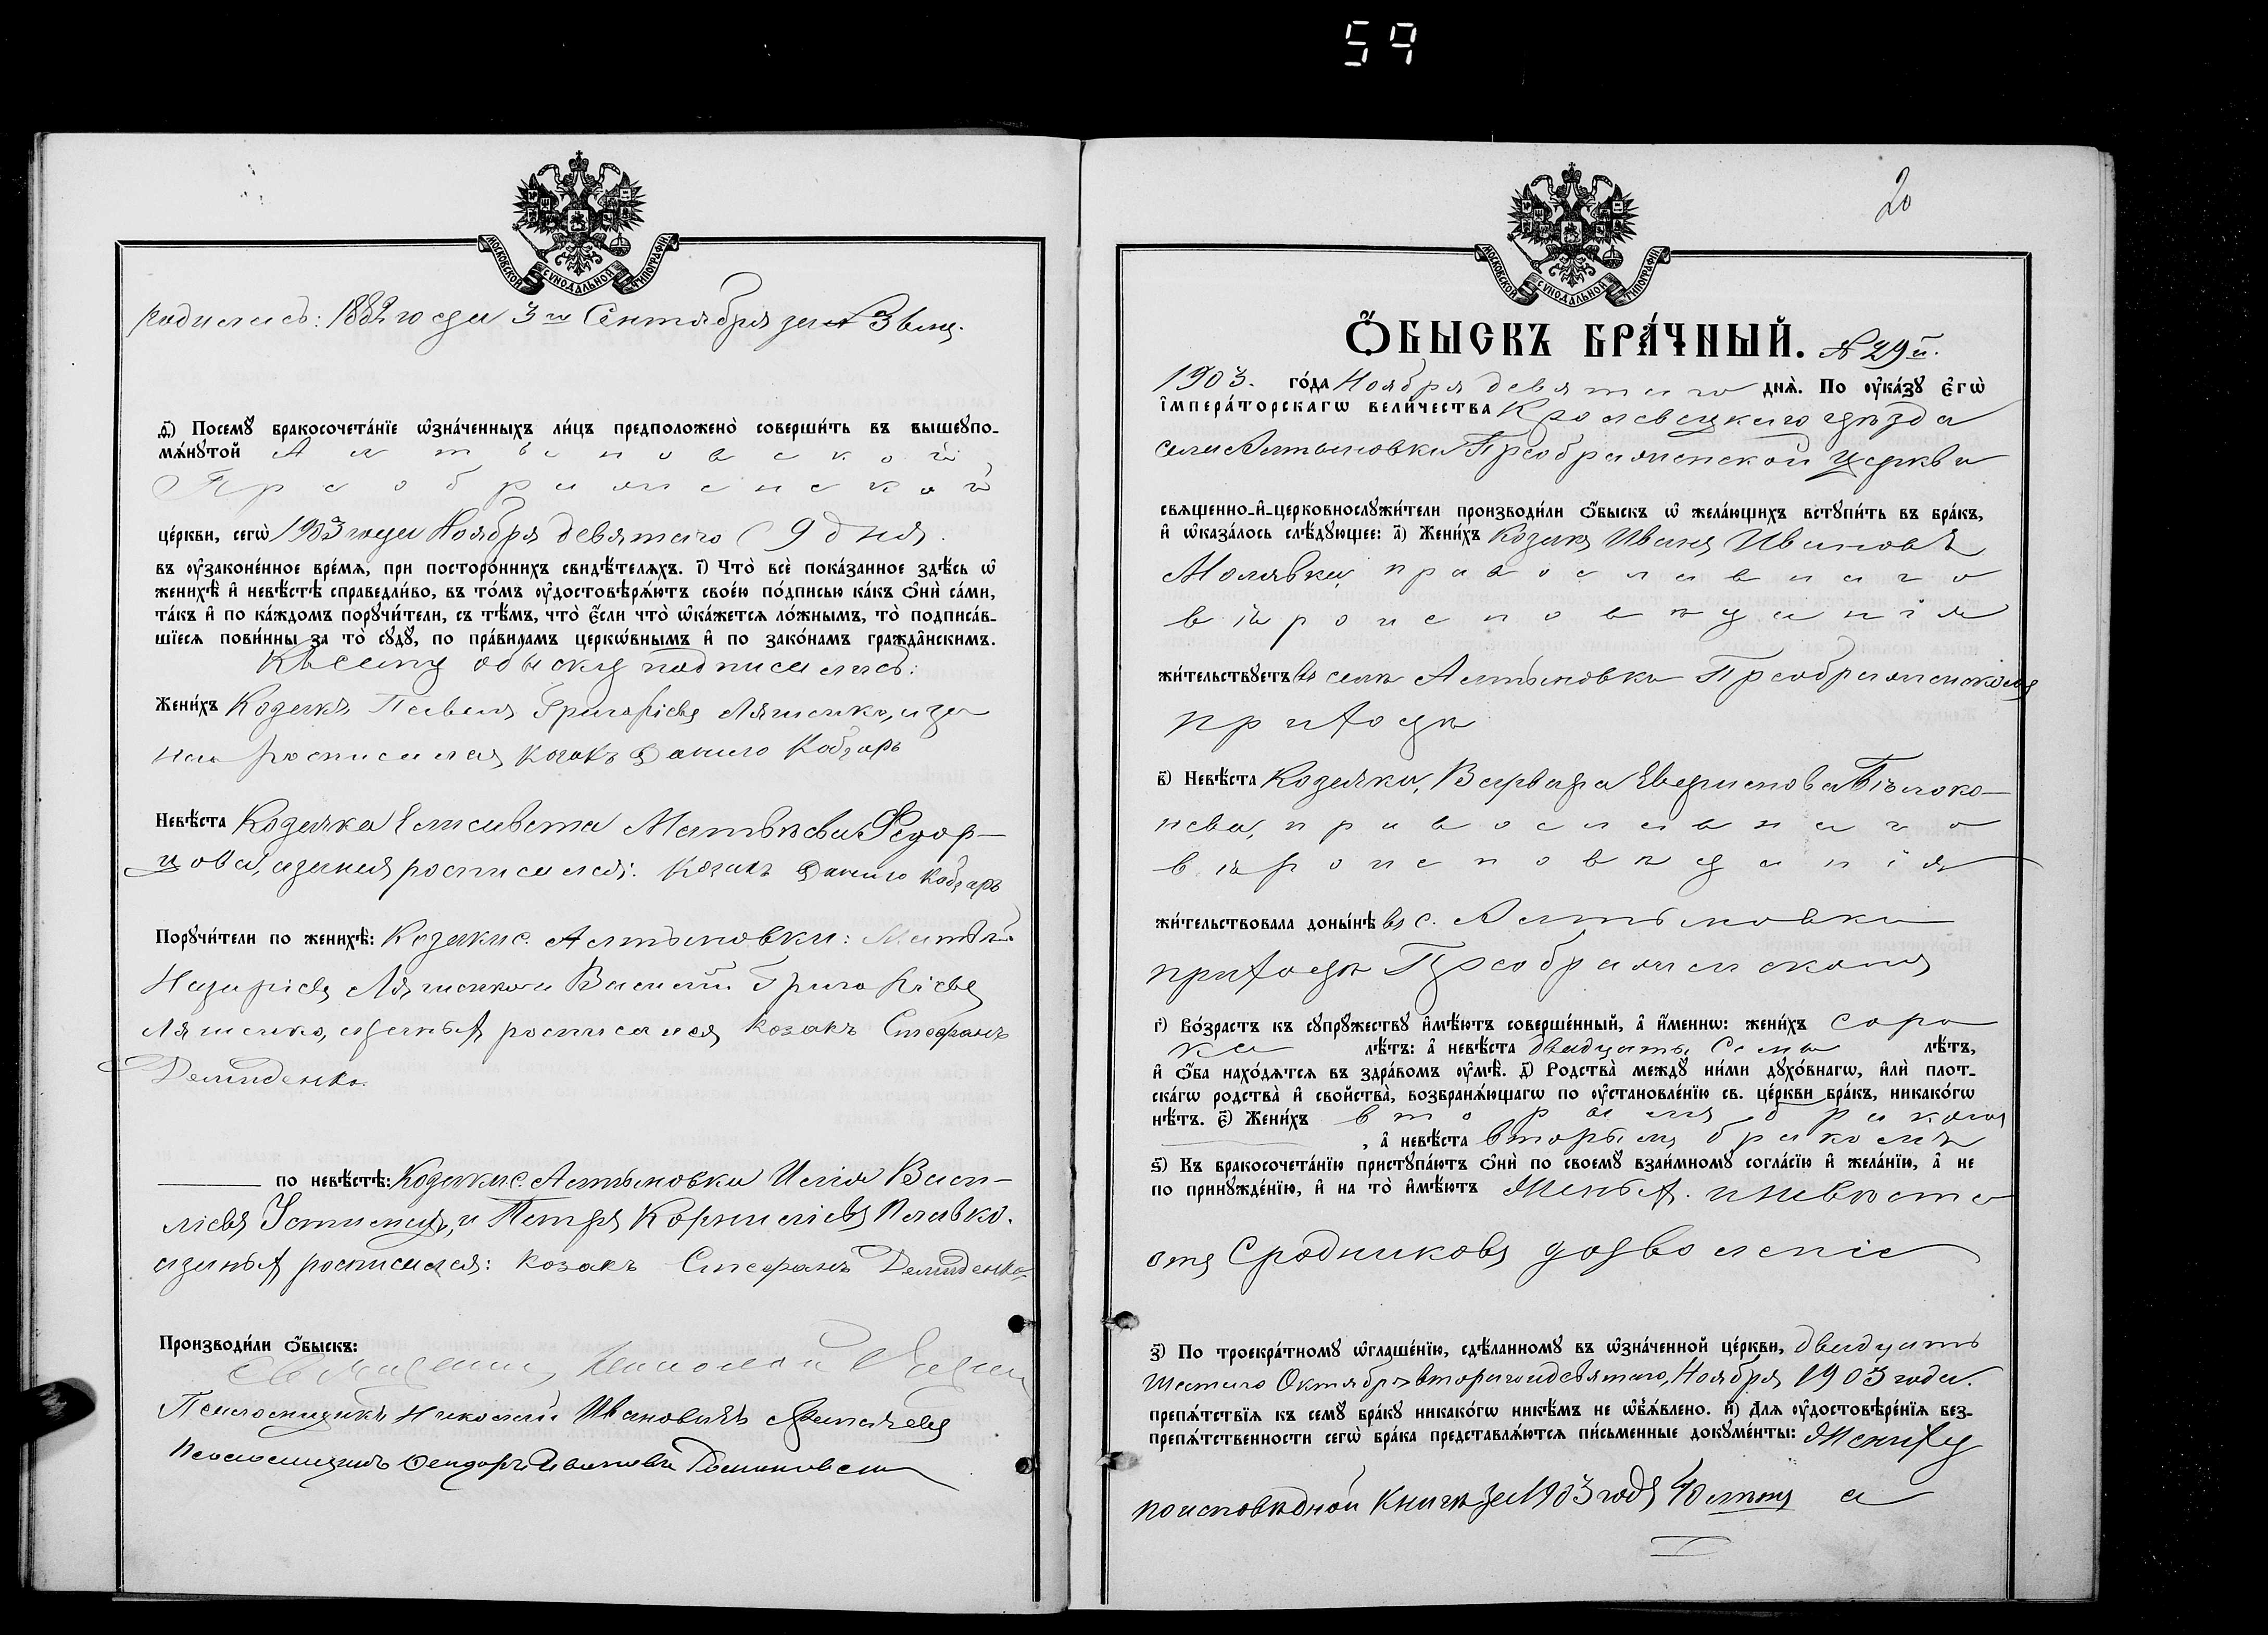 59
МОСКОВСКОЙ СѴНОДАЛЬНОЙ ТИПОГРАФІИ.
родилась: 1882 года 3го Сентября за № 3 вѣнч.
д҃і) Посемꙋ бракосочета́нїе ѡ҆зна́ченныхъ ли́цъ предположено̀ соверши́ть въ вышеꙋпо-
мѧ́нꙋтой Алтыновской
Преображенской
це́ркви, сегѡ̀ 1903 года Ноября девятаго (9 дня.
въ ᲂу҆законе́нное вре́мѧ, при посторо́ннихъ свидѣ́телѧхъ. і҃) Что̀ всѐ пока́занное здѣ́сь ѡ҆
женихѣ̀ и҆ невѣ́стѣ справедли́во, въ то́мъ ᲂу҆достовѣрѧ́ютъ свое́ю по́дписью ка́къ ѻ҆нѝ са́ми,
та́къ и҆ по ка́ждомъ порꙋчи́тели, съ тѣ́мъ, что̀ є҆́сли что̀ ѡ҆ка́жется ло́жнымъ, то̀ подписа́в-
шїеся пови́нны за то̀ сꙋдꙋ̀, по пра́виламъ церкѡ́внымъ и҆ по зако́намъ гражда́нскимъ.
Къ сему обыску подписались:
Жени́хъ Козакъ Павелъ Григоріевъ Ляшенко, а за
него росписался козакъ Данило Кобзарь
Невѣ́ста Козачка Елисавета Матвѣева Федор-
цова, а за нея росписался: Козакъ Данило Кобзарь
Порꙋчи́тели по женихѣ̀: Козаки с. Алтыновки: Матвѣй
Назаріевъ Ляшенко и Василій Григоріевъ
Ляшенко, а за нихъ росписался козакъ Стефанъ
Демиденко.
по невѣ́стѣ: Козаки с. Алтыновки Илія Васи-
ліевъ Устименко, и Петръ Корниліевъ
а за нихъ росписался: козакъ Стефанъ Демиденко
Производи́ли ѻ҆́быскъ:
Священникъ Николай
Псаломщикъ Николай Ивановичъ
Псаломщикъ Феодоръ Ивановъ
20
МОСКОВСКОЙ СѴНОДАЛЬНОЙ ТИПОГРАФІИ.
Ѻ҆́БЫСКЪ БРА́ЧНЫЙ. № 29й.
1903. го́да Ноября девятаго днѧ̀. По ᲂу҆ка́зꙋ є҆гѡ̀
і҆мпера́торскагѡ вели́чества Кролевецкаго уѣзда
села Алтыновки Преображенской церкви
свѧщенно-и҆-церковнослꙋжи́тели производи́ли ѻ҆́быскъ ѡ҆ жела́ющихъ встꙋпи́ть въ бра́къ,
и҆ ѡ҆каза́лось слѣ́дꙋющее: а҃) Жени́хъ Козакъ Иванъ Ивановъ
Молявка православнаго
вѣроисповѣданія
жи́тельствꙋетъ въ селѣ Алтыновкѣ Преображенскомъ
приходѣ
в҃) Невѣ́ста Козачка, Варвара Евдокимова Бѣлоко-
нева, православнаго
вѣроисповѣданія
жи́тельствовала доны́нѣ въ с. Алтыновкѣ
приходѣ Преображенскомъ
г҃) Во́зрастъ къ сꙋпрꙋ́жествꙋ и҆мѣ́ютъ соверше́нный, а҆ и҆́меннѡ: жени́хъ соро
ка лѣ́тъ: а҆ невѣ́ста двадцать семь лѣ́тъ,
и҆ ѻ҆́ба нахо́дятся въ здра́вомъ ᲂу҆мѣ̀. д҃) Родства̀ междꙋ̀ ни́ми дꙋхо́внагѡ, и҆лѝ плот-
ска́гѡ родства̀ и҆ сво́йства̀, возбранѧ́ющагѡ по ᲂу҆становле́нїю св. це́ркви бра́къ, никако́гѡ
нѣ́тъ. є҃) Жени́хъ вторымъ бракомъ
, а҆ невѣ́ста вторымъ бракомъ
ѕ҃) Къ бракосочета́нїю пристꙋпа́ютъ ѻ҆нѝ по своемꙋ̀ взаи́мномꙋ согла́сїю и҆ жела́нїю, а҆ не
по принꙋжде́нїю, и҆ на то̀ и҆мѣ́ютъ Женихъ и невѣста
отъ Сродниковъ дозволеніе
з҃) По троекра́тномꙋ ѡ҆глаше́нїю, сдѣ́ланномꙋ въ ѡ҆зна́ченной це́ркви, двадцать
шестаго Октября втораго и девятаго, Ноября 1903 года.
препѧ́тствїя къ семꙋ̀ бра́кꙋ никако́гѡ никѣ́мъ не ѡ҆б̾ѧ́влено. и҃) Для ᲂу҆достовѣре́нїя без-
препѧ́тственности сегѡ̀ бра́ка представлѧ́ются пи́сьменные докꙋме́нты: Жениху
по исповѣдной книгѣ за 1903 годъ 40 лѣтъ а